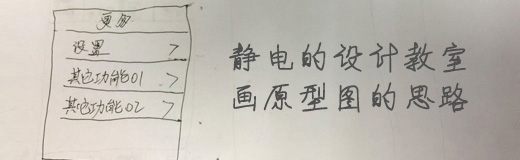 更多
设置 >
其它功能01 >
其它功能02 >
静电的设计教室
画原型图的思路